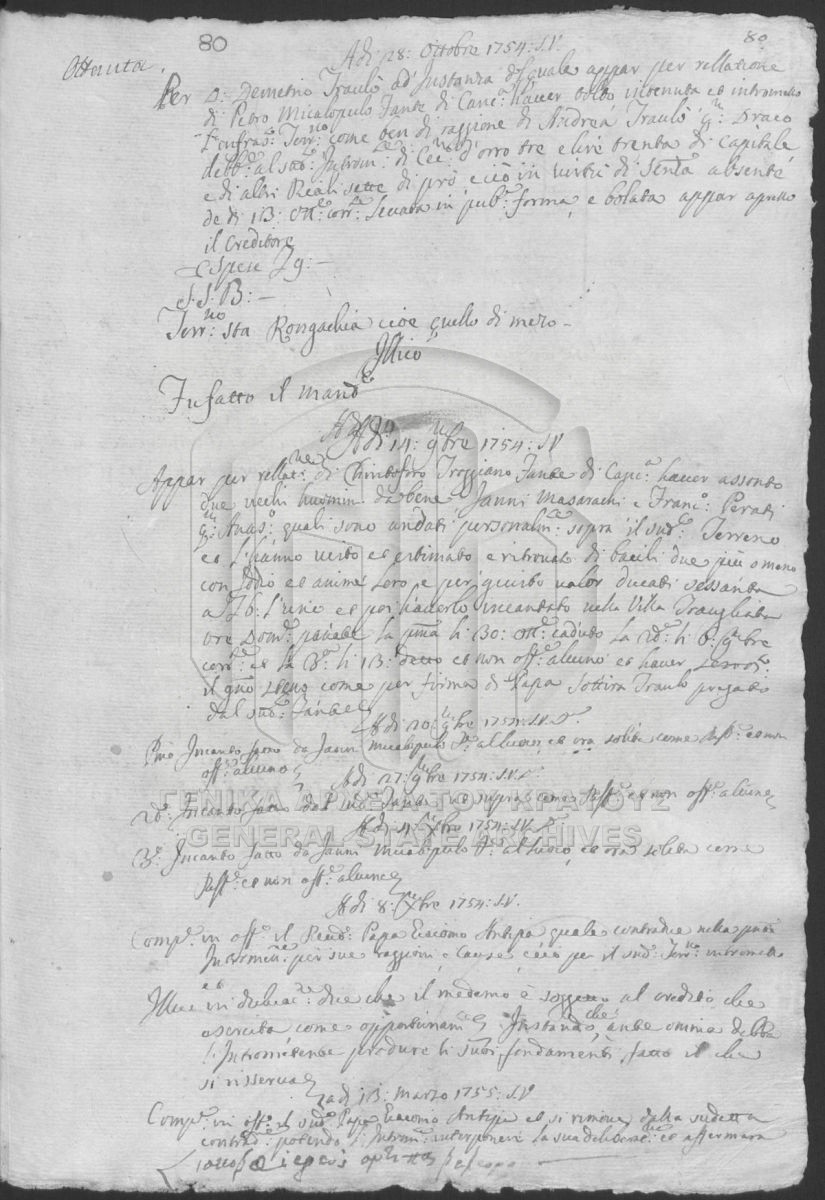 80
80
Ottanta.
Adi 28: Ottobre 1754: S.V.
Per D: Demetrio Traulò ad Instanza del quale appar per rellatione
di Pietro Micalopulo Fante di Canc.ª haver tolto intenuta et intromesso
l'infras.º Terr.no come ben di raggione di Andrea Traulò q.m Draco
debb.e al sud.º Introm.te di Cec.ni d'orro tre e lire trenta di capitale
e di altri Reali sette di prò e ciò in virtù di Sent.ª absente
de di 13: Ott.e corr.te levata in pub.ª forma, e bolata appar apresso
il Creditore
Spese 9: —
S. S. 13: —
Terr.no sta Rongachia cioè quello di mezo –
Illico
Fu fatto il mand.to
Adi 14: 9bre 1754: S.V
Appar per rellat.ne di Christoforo Troggiano Fante di Canc.ª haver assonto
due vechi huomini da bene Janni Masarachi e Franc.º Perati
q.m Anas.º quali sono andati personalm.te sopra il sud.º Terreno
et l'hanno visto et estimato e ritrovato di bacili due più o meno
con Iddio et anime loro e per giusto valor ducati sessanta
a 6: l'uno et poi haverlo incantato nella Villa Traugliata
tre Dom.e passate la p.ma li 30: Ott.e caduto la 2da li 6: 9bre
corr.te et la 3ª li 13: detto et non off.e alcuno et haver
il come per firma di Papa Sottira Traulò pregato
dal sud.º Fante
Adi 20: 9bre 1754: S.V.
Pmo Incanto fatto da Janni Micalopulo F.e al luoco, et ora solita come et non
off.e alcuno
Adi 27: 9bre 1754: S.V.
2do Incanto fatto dal sud.º Fante ut supra come et non off.e alcuno
Adi 4: Xbre 1754: S.V.
3º Incanto fatto da Janni Micalopulo F.e al luoco, et ora solita come
et non off.e alcuno
Adi 8: Xbre 1754: S.V.
Comp.e in off.º il Revd.º Papa Giacomo Antipa quale contradice nella pnte
Intromiss.e per sue raggioni, e cause, e ciò per il sud.º Terr.no intromesso
et
Illico in dichiarat.ne dice che il medemo è soggetto al credito che
esercita come opportunam.te Instando, che ante omnia debba
l'Intromitente produre li suoi fondamenti, fatto il che
si risserva
adi 13: Marzo 1755: S.V
Comp.e in off.º il sud.º Papa Giacomo Antipa et si rimove dalla sudetta
contrad.ne potendo l'Introm.te interponere la sua deliberat.ne et affermarà
ΓΕΝΙΚΑ ΑΡΧΕΙΑ ΤΟΥ ΚΡΑΤΟΥΣ
GENERAL STATE ARCHIVES